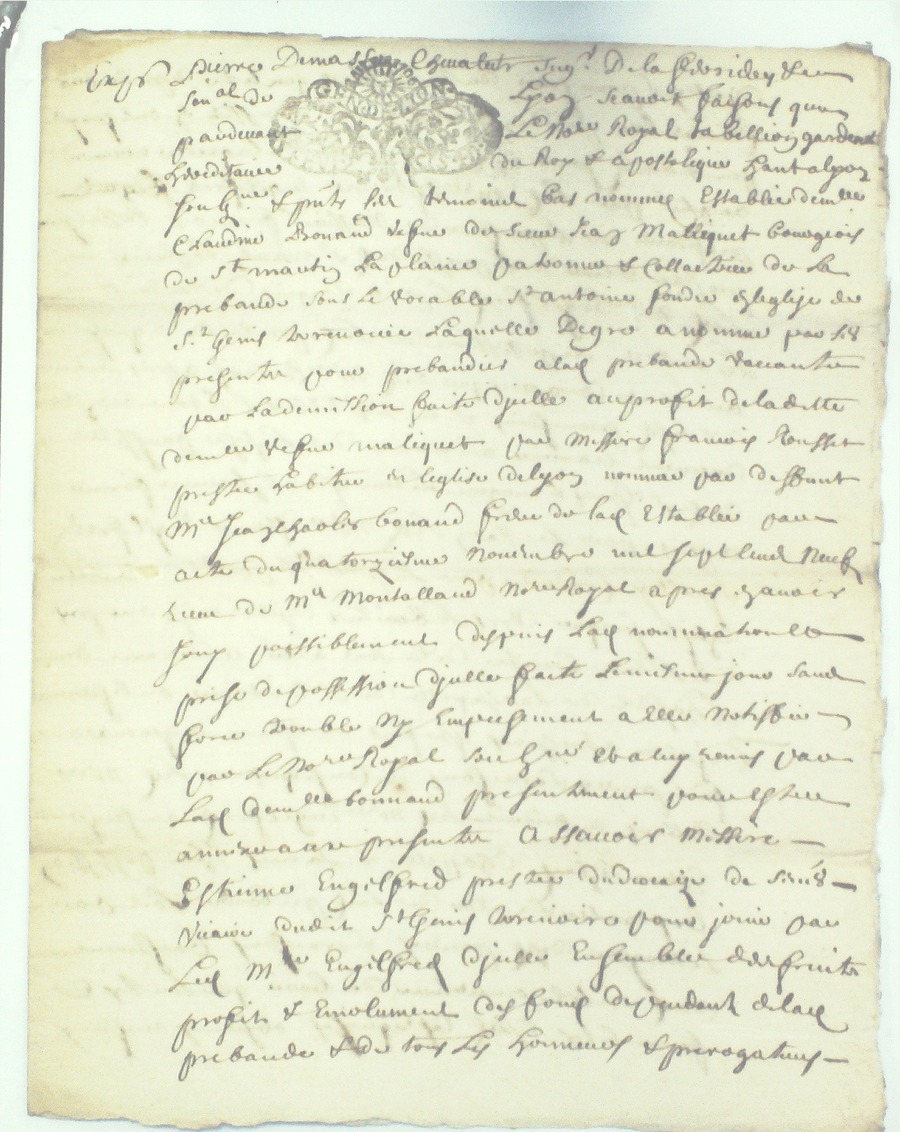 Pierre Demasso Chevalier Seigr De la ferriere &
Sen.al de Lyon scavoir faisons que
pardevant Le Nore Royal tabellion garden
hereditaire du Roy & apostolique hantalyon
soubz.ne & pnts les temoins bas nommes Establie demlle
Claudine Bonand vefve de sieur Jean Maliquet bourgeois
de St martin La plaine patronne & Collatrice de La
prebande sous Le vocable St antoine fondee en leglise de
St Genis terrenoire Laquelle Degre a nomme par ses
presentes pour prebandier a lad prebande vaccante
par La demission faite d'jcelle au profit de la ditte
demlle vefve maliquet par Messire francois Rousset
prestre habitue en leglise de lyon nomme par deffunt
Mre Jean charles bonand frere de lad Establie par
acte du quatorzieme Novembre mil sept cent Neuf
receu de Me Montalland Nore Royal apres en avoir
jouy paissiblement despuis Lad nomination &
prise de possession d'jcelle faite Le mesme jour sans
force trouble Ny Empeschement a Elle Notiffie
par Le Nore Royal soubzne et a luy remis par
Lad demlle bonnand presentement pour Estre
annexe a ces presentes Assavoir Messire
Estienne Engelfred prestre du diocaize de
vicaire dudit St Genis terrenoire pour jouir par
Led Mre Engelfred d'jcelle Ensemble des fruits
profits & Emolument des fonds dependant de lad
prebande & de tous Les honneurs & prerogatives
GENERALITE DE LYON